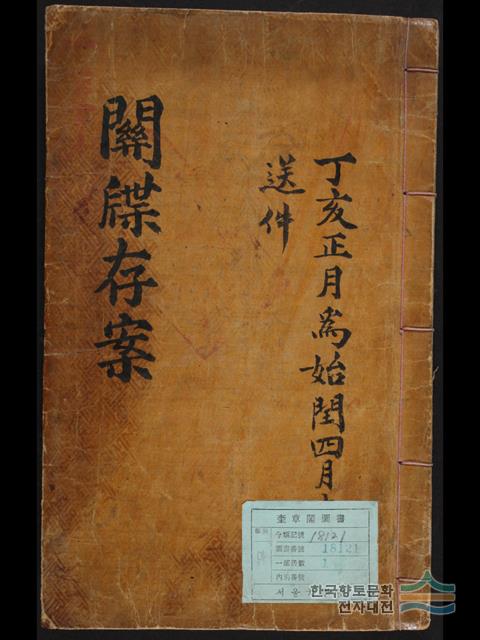 關牒存案
丁亥正月爲始閏四月
送件
奎章閣圖書
分類記號 18121
圖書番號 18121
一部冊數 1
內的番號
서울
한국향토문화
전자대전